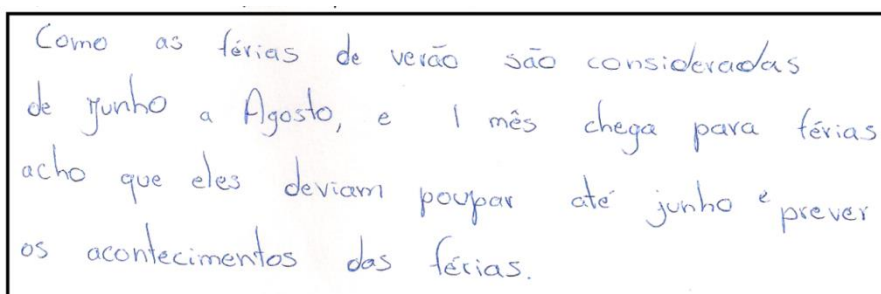 Como as férias de verão são consideradas
de junho a Agosto, e 1 mês chega para férias
acho que eles deviam poupar até junho e prever
os acontecimentos das férias.